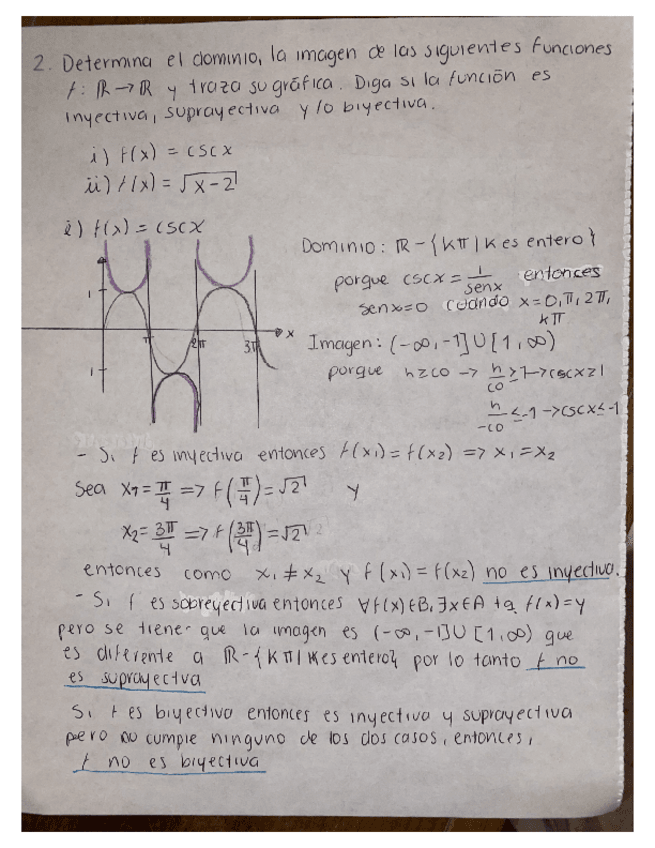 2. Determina el dominio, la imagen de las siguientes funciones
f: ℝ → ℝ y traza su gráfica. Diga si la función es
inyectiva, suprayectiva y/o biyectiva.
i) f(x) = csc x
ii) f(x) = √x-2
i) f(x) = csc x
Dominio: ℝ - {Kπ | K es entero}
porque csc x = 1/senx entonces
senx=0 cuando x=0, π, 2π,
kπ
1
π
2π
3π
x
1
Imagen: (-∞, -1] ∪ [1, ∞)
porque h≥co → h/co ≥ 1 → csc x ≥ 1
h/-co ≤ -1 → csc x ≤ -1
- Si f es inyectiva entonces f(x₁) = f(x₂) => x₁ = x₂
Sea x₁ = π/4 => f(π/4) = √2 y
x₂ = 3π/4 => f(3π/4) = √2
entonces como x₁ ≠ x₂ y f(x₁) = f(x₂) no es inyectiva.
- Si f es sobreyectiva entonces ∀f(x)∈B, ∃x∈A tq f(x)=y
pero se tiene que la imagen es (-∞, -1] ∪ [1, ∞) que
es diferente a ℝ - {Kπ | K es entero} por lo tanto f no
es suprayectva
Si f es biyectiva entonces es inyectiva y suprayectiva
pero no cumple ninguno de los dos casos, entonces,
f no es biyectiva